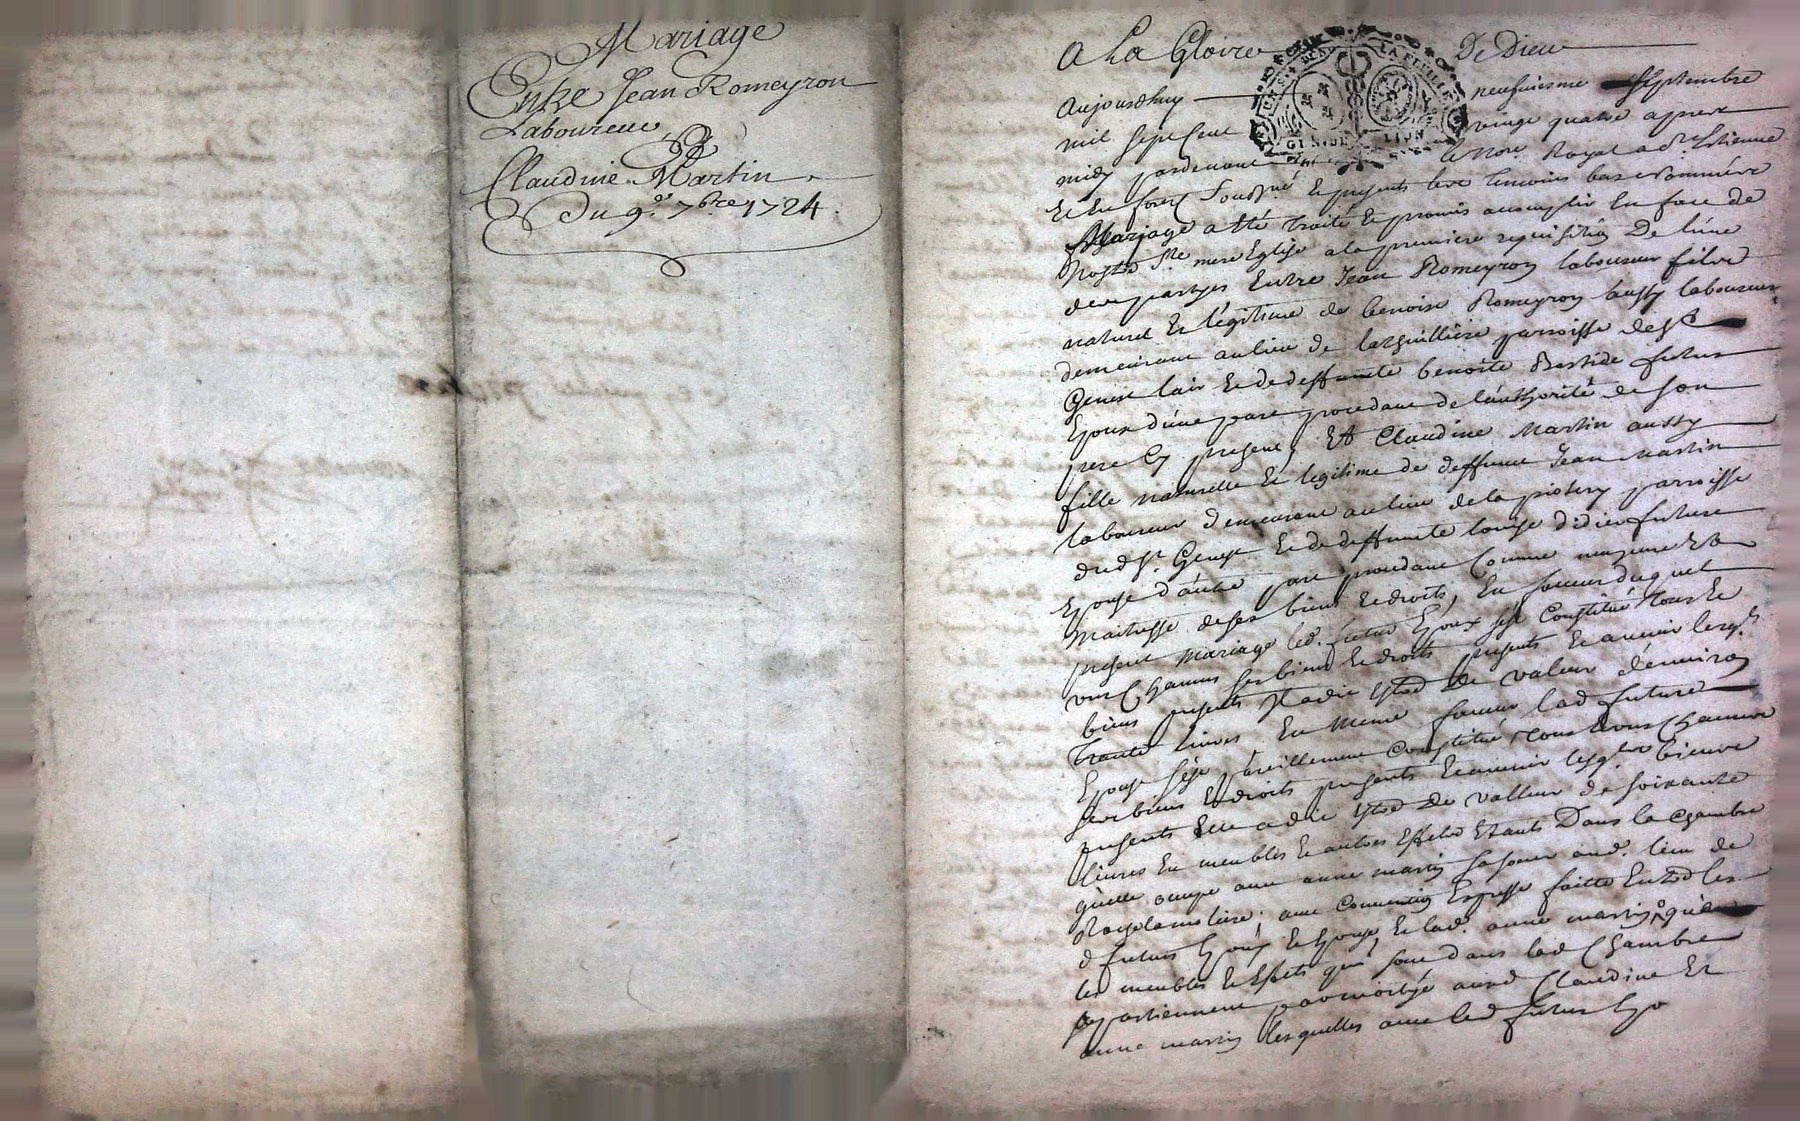 Mariage
Entre Jean Romeyron
Laboureur
&
Claudine Martin
Du 9e 7bre 1724.
A La Gloire De Dieu
Aujourdhuy neufviesme Septembre
mil sept Cent vingt quatre apres
midy pardevant le Nore. Royal a St. Etienne
Et En forez soussné Et presents les temoins bas nommés
Mariage a été traité Et promis accomplir En face de
Nostre Ste mere Eglise a la premiere requisition De l'une
des partyes Entre Jean Romeyron laboureur fils
naturel Et legitime de benoist Romeyron aussy laboureur
demeurant au lieu de parroisse de St
Genest lair Et de deffunte benoite Bastide futur
Epoux d'une part procedant de l'authorité de son
pere Cy present, Et Claudine Martin aussy
fille naturelle Et legitime de deffunct Jean Martin
laboureur demeurant au lieu de la parroisse
dud St. Genest Et de deffunte louise didier future
Epouse d'autre part procedant Comme
maitresse de ses biens Et droits, En faveur duquel
present Mariage led. futur Epoux s'est Constitué tous Et
uns Chacuns ses biens Et droits presents Et avenir lesqls
biens presents Il a dit Estre De valeur d'environ
trante livres En meme faveur lad future
Epouse s'est pareillement Constitué tous Et uns Chacuns
ses biens Et droits presents Et avenir lesqls biens
presents Elle a dit Estre De valleur de soixante
livres En meubles Et autres Effets Etants Dans la Chambre
qu'elle occupe avec anne martin sa soeur aud. lieu de
avec Convention Expresse faitte Entre les
d futurs Epoux Et Epouse, Et lad. anne martin, que
les meubles Et Effets qui sont dans lad Chambre
appartiennent par moitié auxd Claudine Et
anne martin lesquelles avec led futur Epo